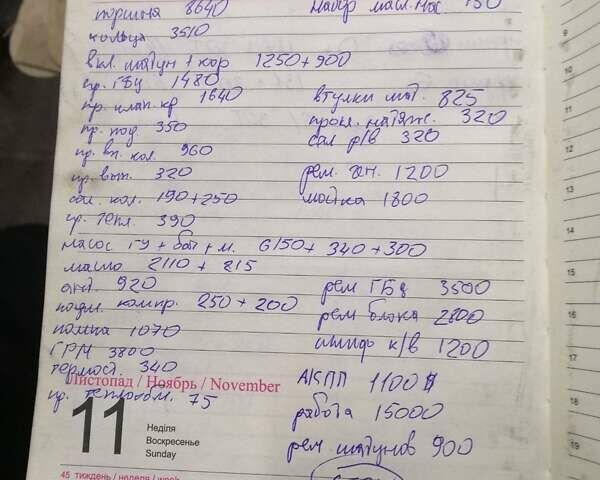 поршня 8640
набор масл. нас 150
кольца 3510
вкл. шатун + кор 1250+900
пр. ГБЦ 1480
пр. клап. кр 1640
втулки шат. 825
пр. под. 350
прокл. натяж. 320
сал р/в 320
пр. вп. кол. 960
пр. вып. 320
рем. ген. 1200
сал. кол. 190+250
мойка 1800
пр. тепл. 390
насос ГУ + бач + м. 6150+ 340+300
масло 2110 + 215
окл. 920
рем ГБЦ 3500
подш. компр. 250 + 200
рем блока 2800
помпа 1070
шлиф к/в 1200
ГРМ 3800
термост. 340
АКПП 1100$
Листопад / Ноябрь / November
пр. теплообм. 75
работа 15000
11
Неділя
Воскресенье
Sunday
рем шатунов 900
45 тиждень / неделя / week
9
10
11
12
13
14
15
16
17
18
19